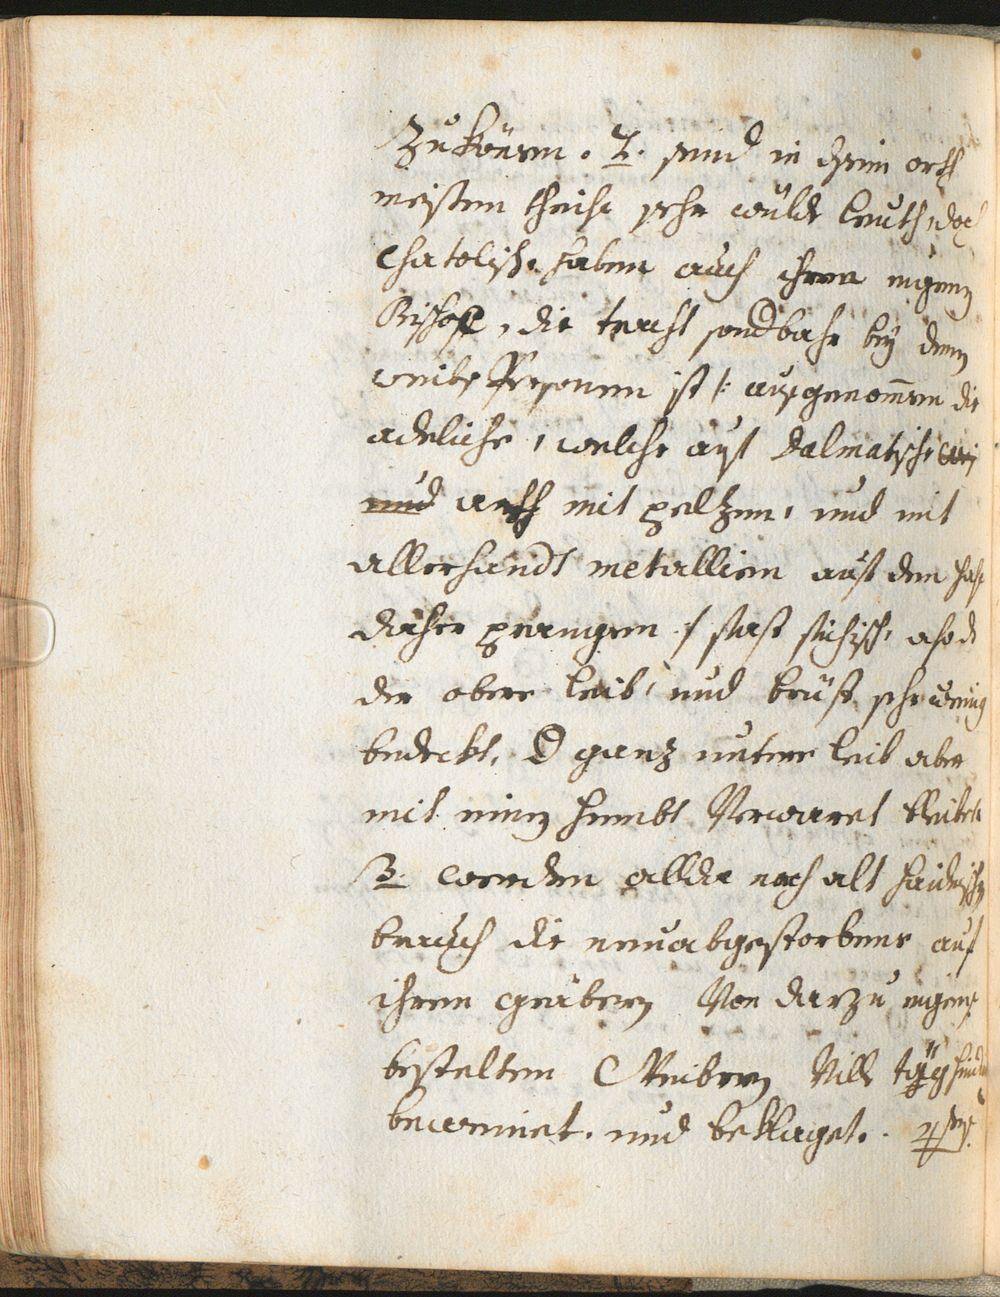 Zu können. 2. seind in disem orth
meisten theils sehr wilde leuth, doch
Chatolisch. haben auch ihren eigenen
Bischoff, die tracht sonderbahr bey denen
weibs Persohnen ist /: ausgenommen die
adeliche, welche auf Dalmatisch
und auch mit peltzen, und mit
allerhandt metallien auf dem
daher prangen :/ fast
der obere leib, und brust sehr wenig
bedeckt, D ganz untere leib aber
mit einem hembt Verwaret bleibet
3. werden allda nach alt haidnischen
brauch die neuabgestorbene auf
ihren gräbern Von darzu eigens
bestelten Weibern Vill täg
beweinet. und beklaget.